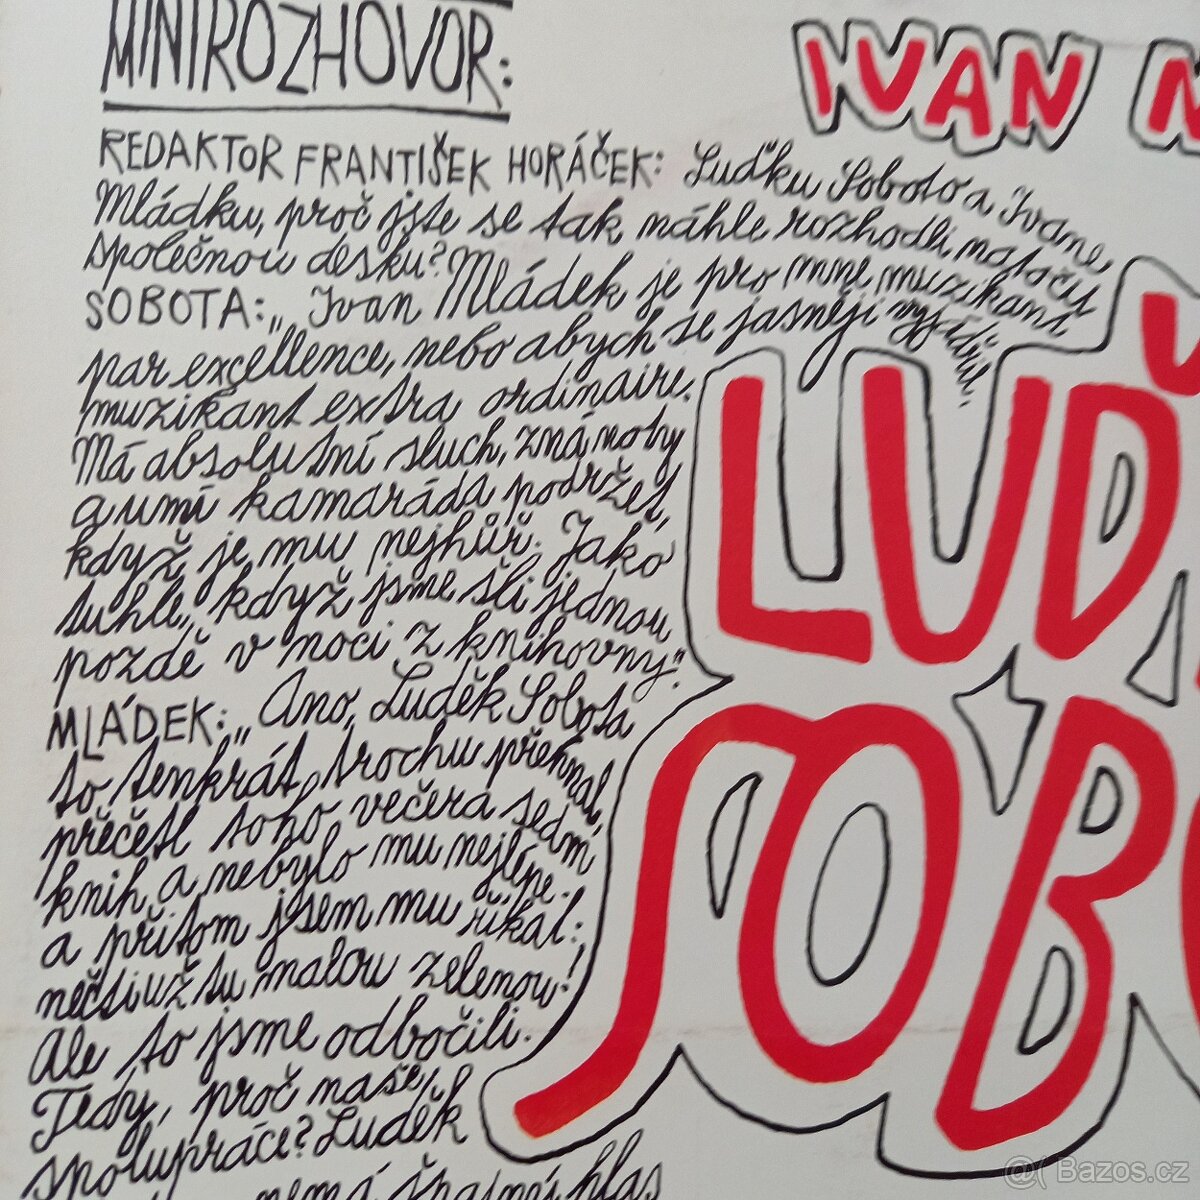 MINIROZHOVOR:
IVAN M
REDAKTOR FRANTIŠEK HORÁČEK: Luďku Soboto a Ivane
Mládku, proč jste se tak náhle rozhodli natočit
společnou desku?
SOBOTA: „Ivan Mládek je pro mne muzikant
par excellence, nebo abych se jasněji vyjádřil,
muzikant extra ordinaire.
Má absolutní sluch, zná noty
a umí kamaráda podržet,
když je mu nejhůř. Jako
tuhle, když jsme šli jednou
pozdě v noci z knihovny."
MLÁDEK: „Ano, Luděk Sobota
to tenkrát trochu přehnal,
přečetl toho večera sedm
knih a nebylo mu nejlépe.
a přitom jsem mu říkal:
nečti už tu malou zelenou!
Ale to jsme odbočili.
Tedy, proč naše
spolupráce? Luděk
nemá špatný hlas
LUĎ
SOB
@( Bazos.cz